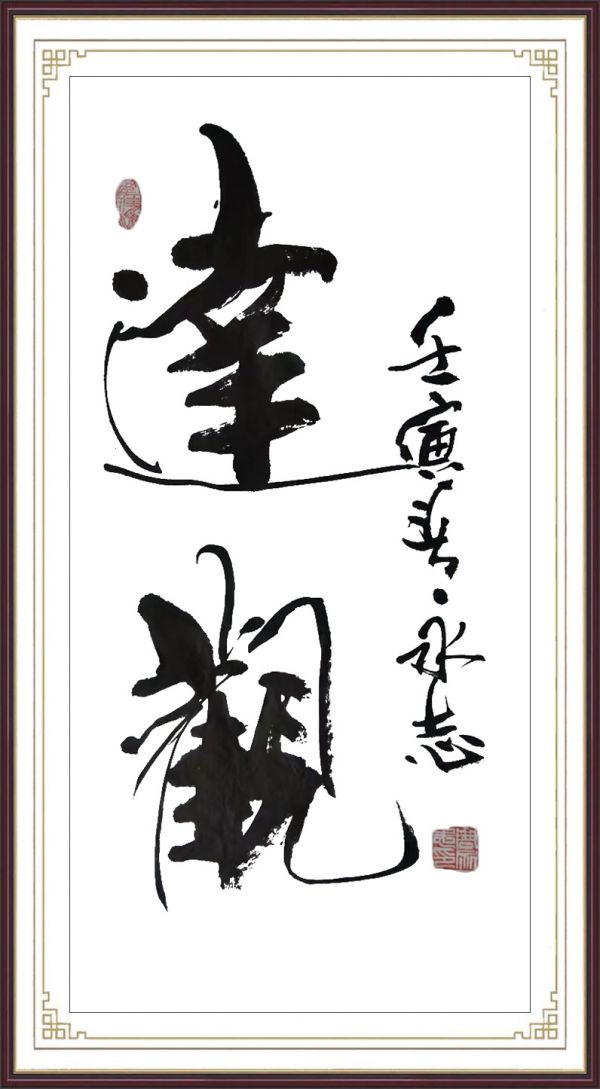 達觀
壬寅春永志